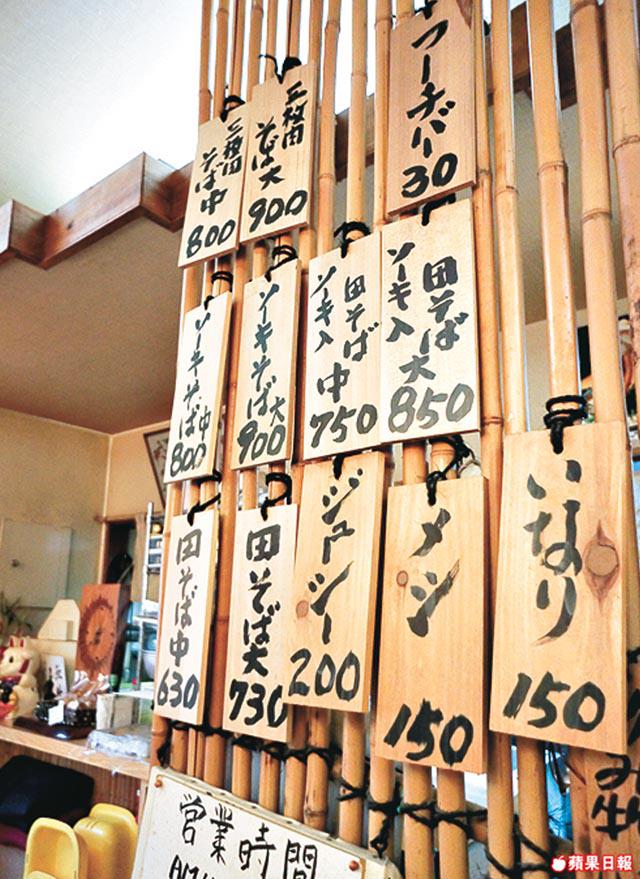 三枚肉
そば中
800
三枚肉
そば大
900
フーチバー
30
ソーキそば中
800
ソーキそば大
900
田そば中
ソーキ入
750
田そば大
ソーキ入
850
田そば中
630
田そば大
730
ジューシー
200
メン
150
いなり
150
営業時間
蘋果日報